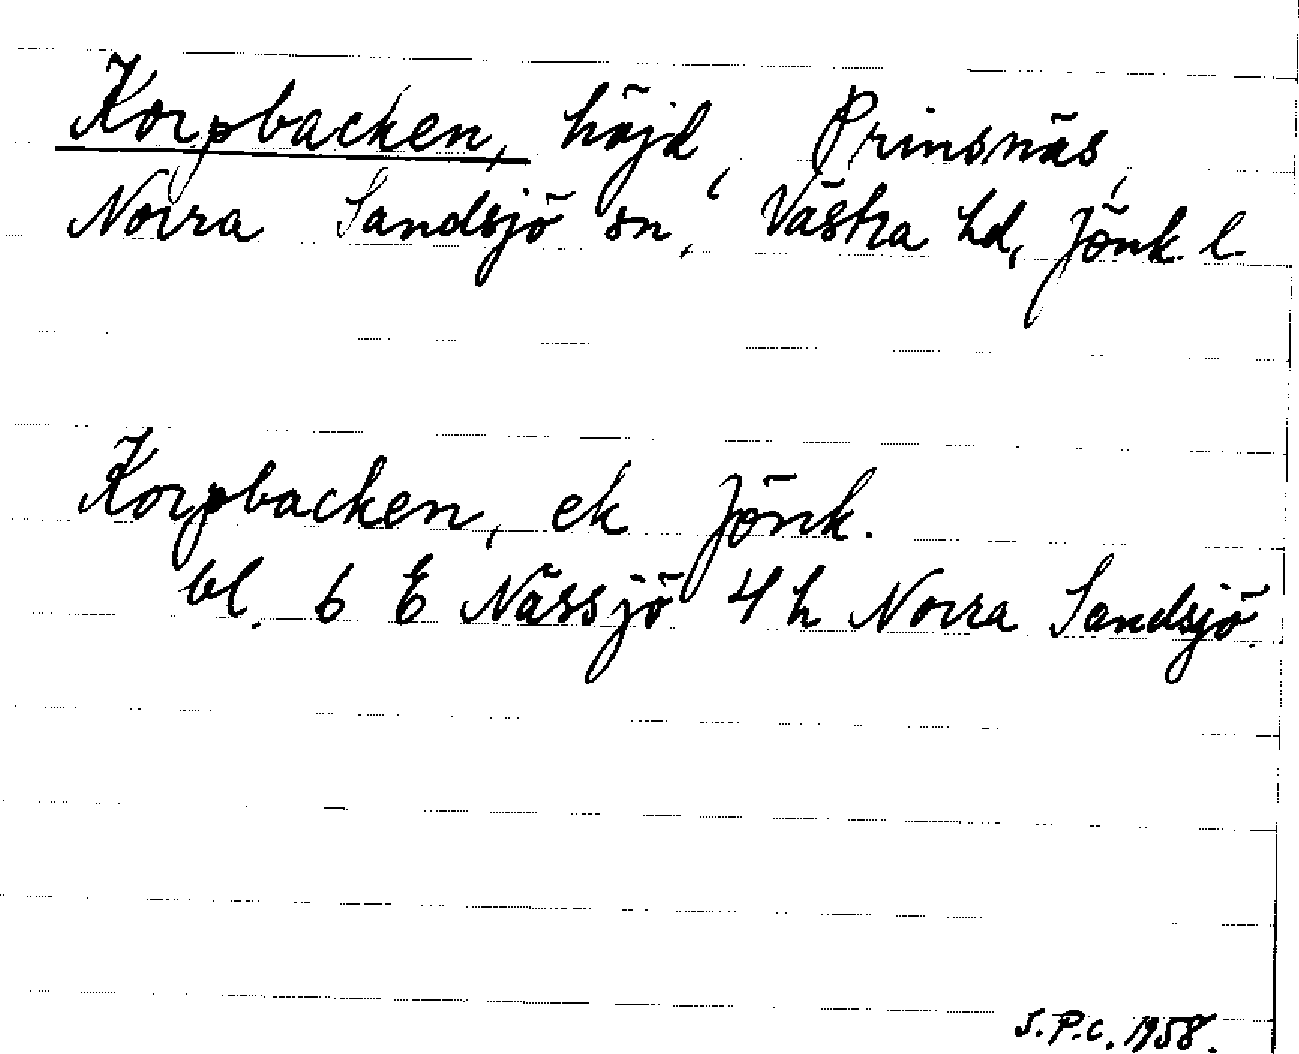 Korpbacken, höjd, Prinsnäs,
Norra Sandsjö sn, Västra hd, Jönk. l.
Korpbacken, ek Jönk.
bl. 6 E Nässjö 4 h Norra Sandsjö.
S.P.C. 1958.